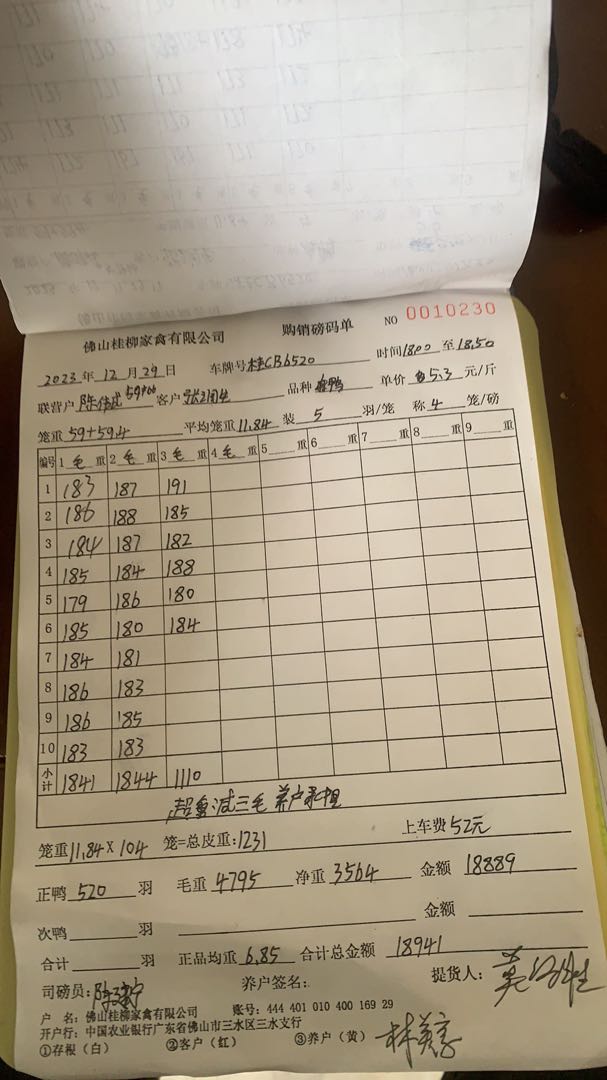 佛山桂柳家禽有限公司 购销磅码单 NO 0010230
2023年 12月 29日 车牌号 桂CB6520 时间 1800 至 1850
联营户 陈 客户 品种 鸭 单价 5.3 元/斤
笼重 59+59.4 平均笼重 11.84 装 5 羽/笼 称 4 笼/磅
编号 1 毛 重 2 毛 重 3 毛 重 4 毛 重 5 重 6 重 7 重 8 重 9 重
1 183 187 191
2 186 188 185
3 184 187 182
4 185 184 188
5 179 186 180
6 185 180 184
7 184 181
8 186 183
9 186 185
10 183 183
小计 1841 1844 1110
超重减三毛 养户承担
笼重 11.84 × 104 笼=总皮重: 1231 上车费 52元
正鸭 520 羽 毛重 4795 净重 3564 金额 18889
次鸭 羽 金额
合计 羽 正品均重 6.85 合计总金额 18941
司磅员: 养户签名: 提货人:
户 名: 佛山桂柳家禽有限公司 账号: 444 401 010 400 169 29
开户行: 中国农业银行广东省佛山市三水区三水支行
①存根(白) ②客户(红) ③养户(黄)